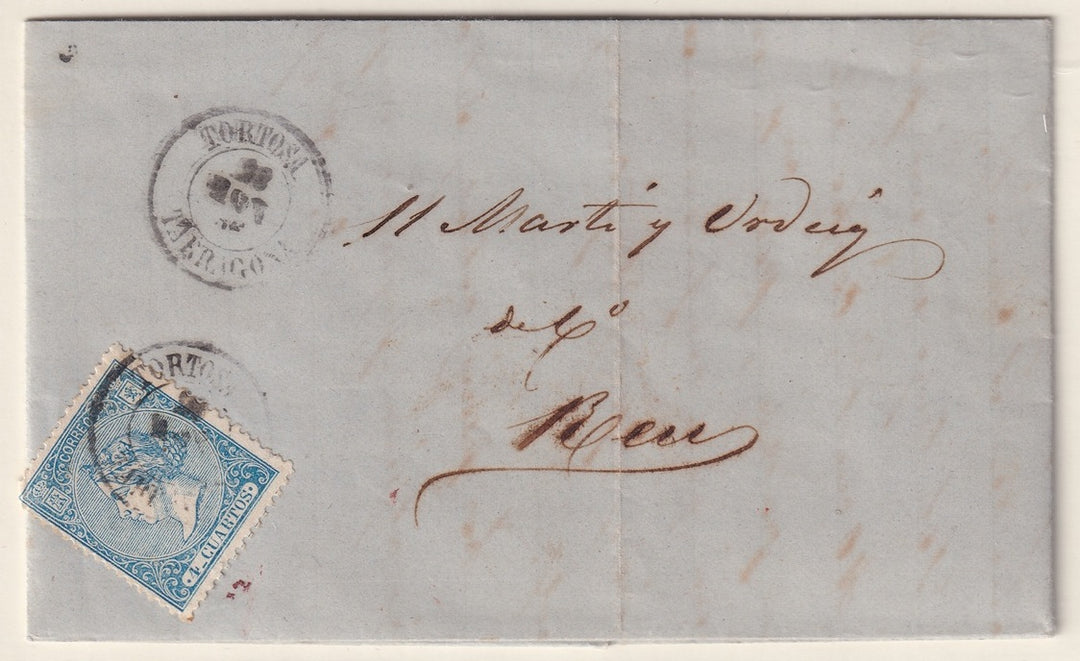 TORTOSA
NOV
TARRAGONA
Marti y
de Cº
Reus
TORTOSA
CORREOS
4 CUARTOS